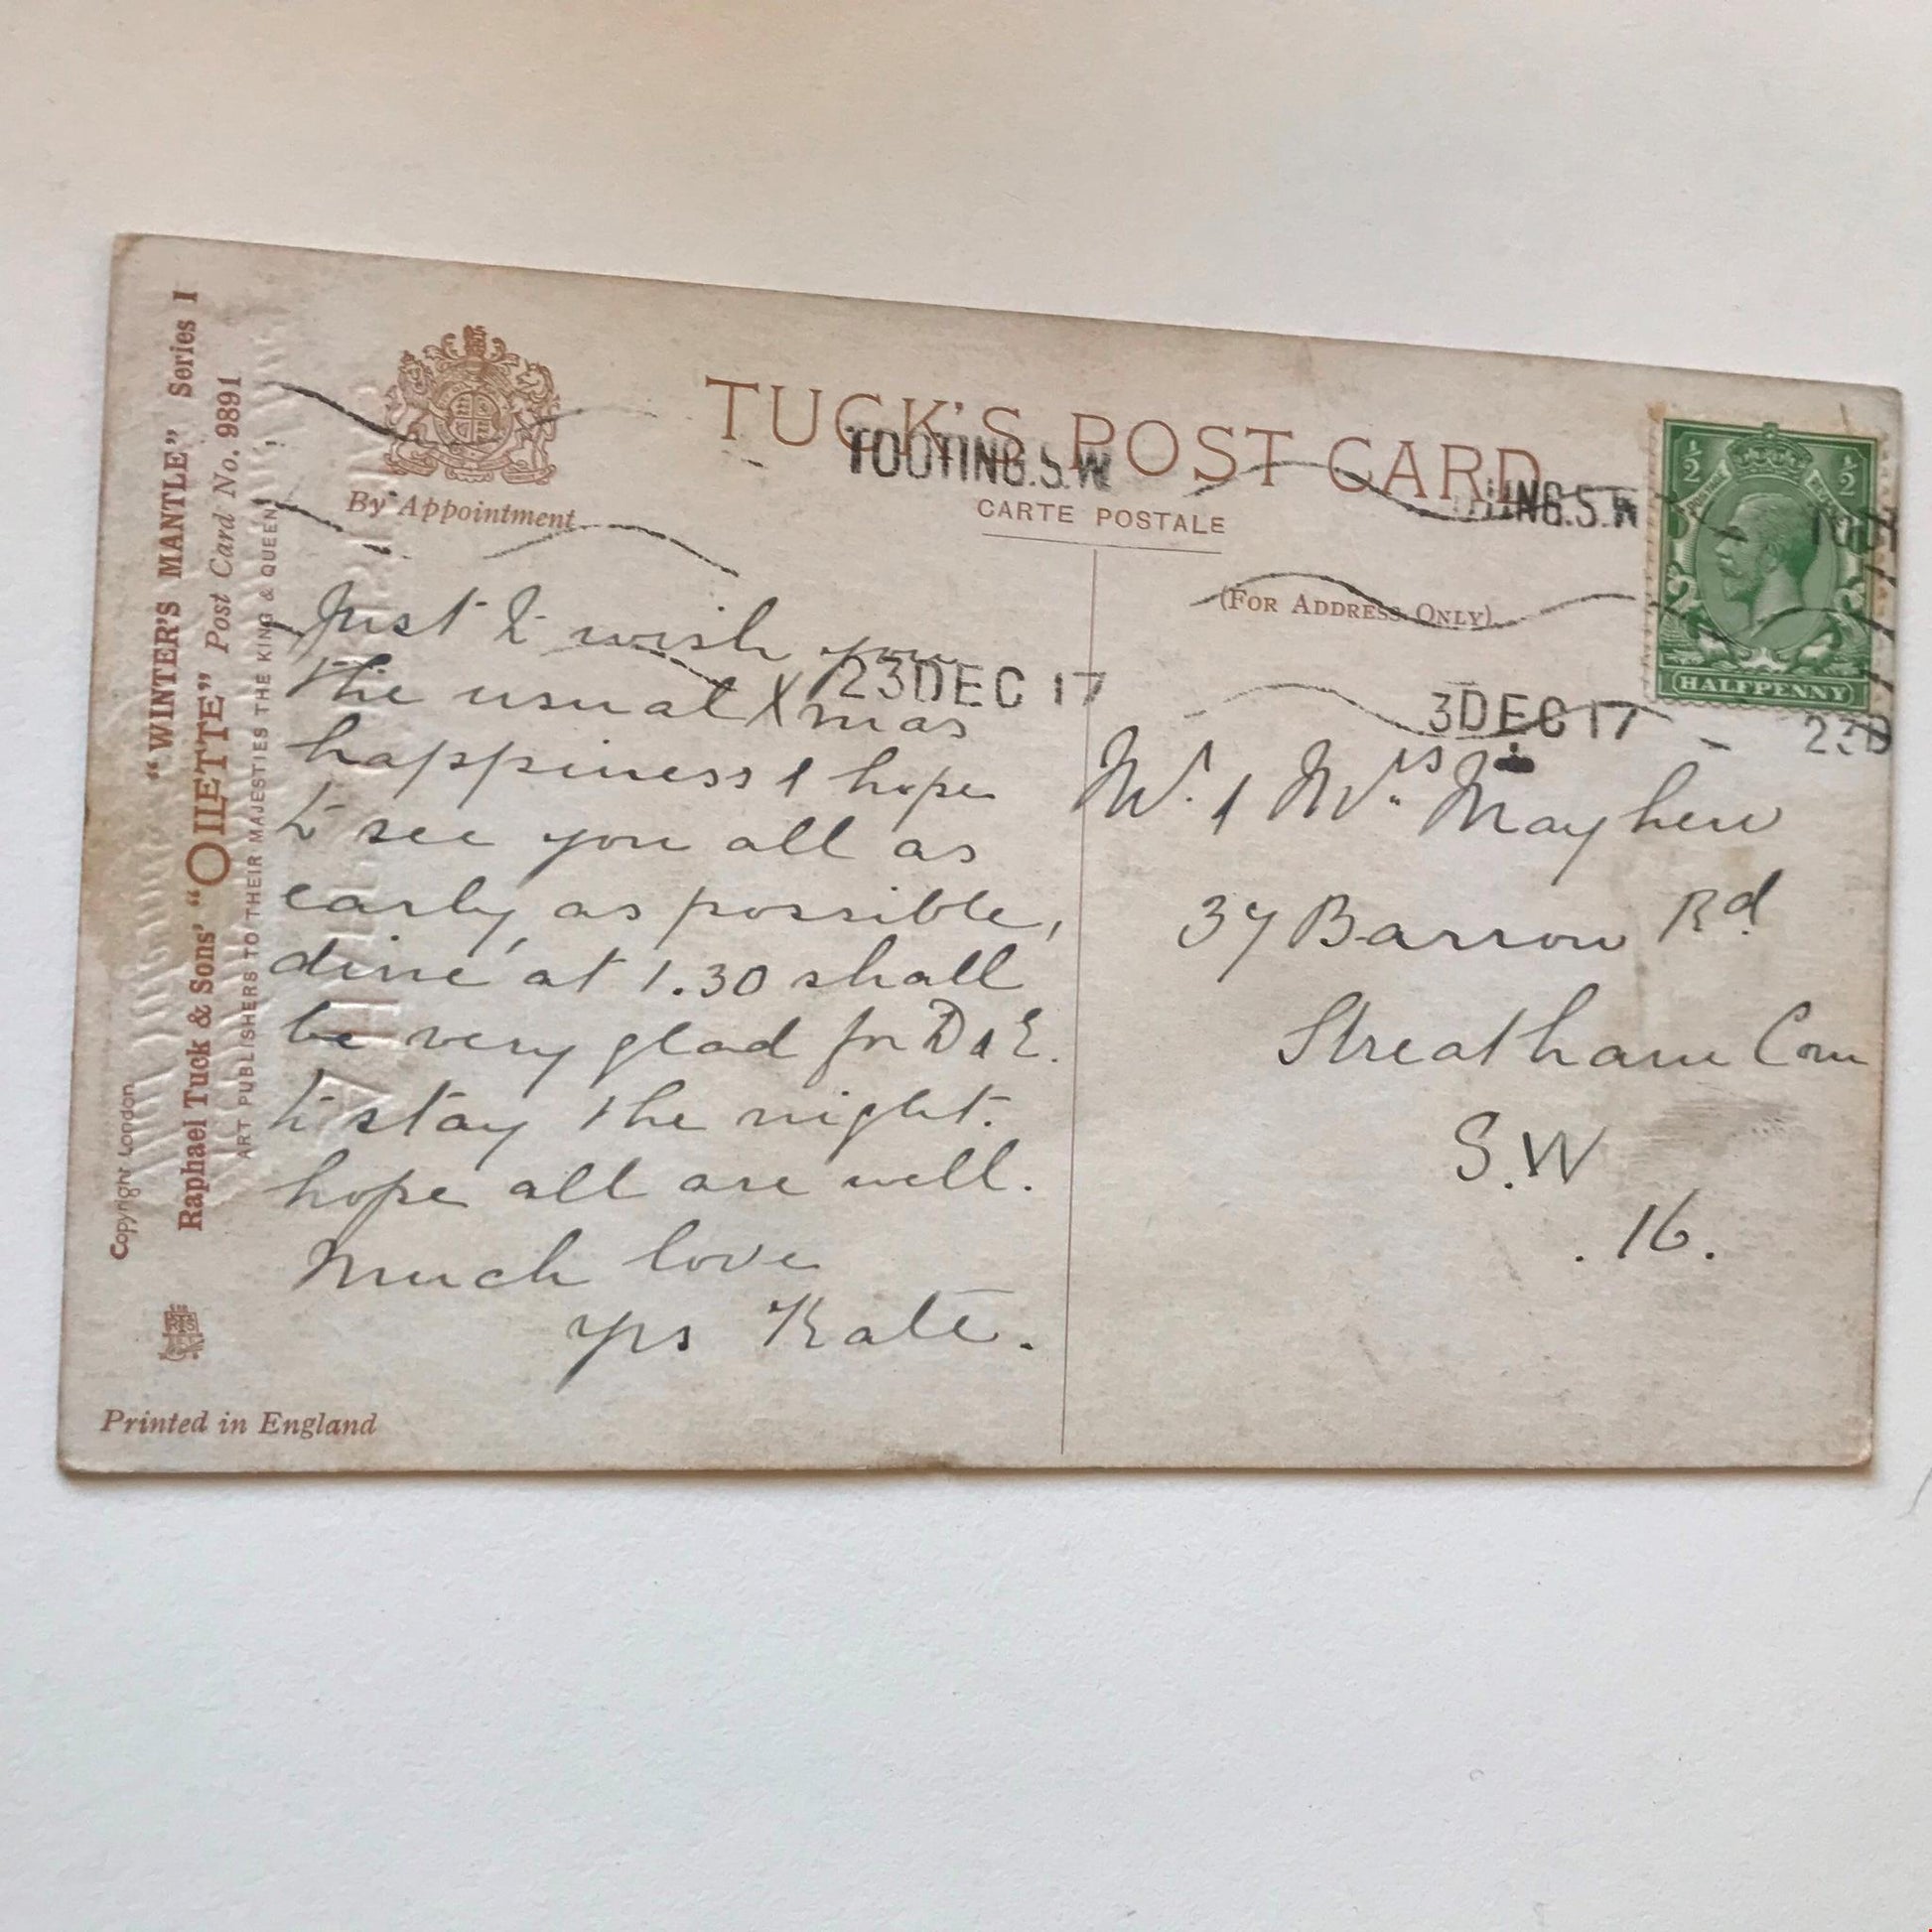 "WINTER'S MANTLE" Series I
Raphael Tuck & Sons' "OILETTE" Post Card No. 9891
ART PUBLISHERS TO THEIR MAJESTIES THE KING & QUEEN,
Copyright London
By Appointment
TUCK'S POST CARD
CARTE POSTALE
(FOR ADDRESS ONLY)
TOOTING.S.W
TING.S.W
23DEC 17
3DEC 17
23D
½ ½
POSTAGE
HALFPENNY
Just to wish you
the usual Xmas
happiness & hope
to see you all as
early as possible,
dine at 1.30 shall
be very glad for D & E.
to stay the night.
hope all are well.
Much love
yrs Kate.
Mr. & Mrs. Mayhew
37 Barrow Rd.
Streatham Com
S.W
.16.
Printed in England